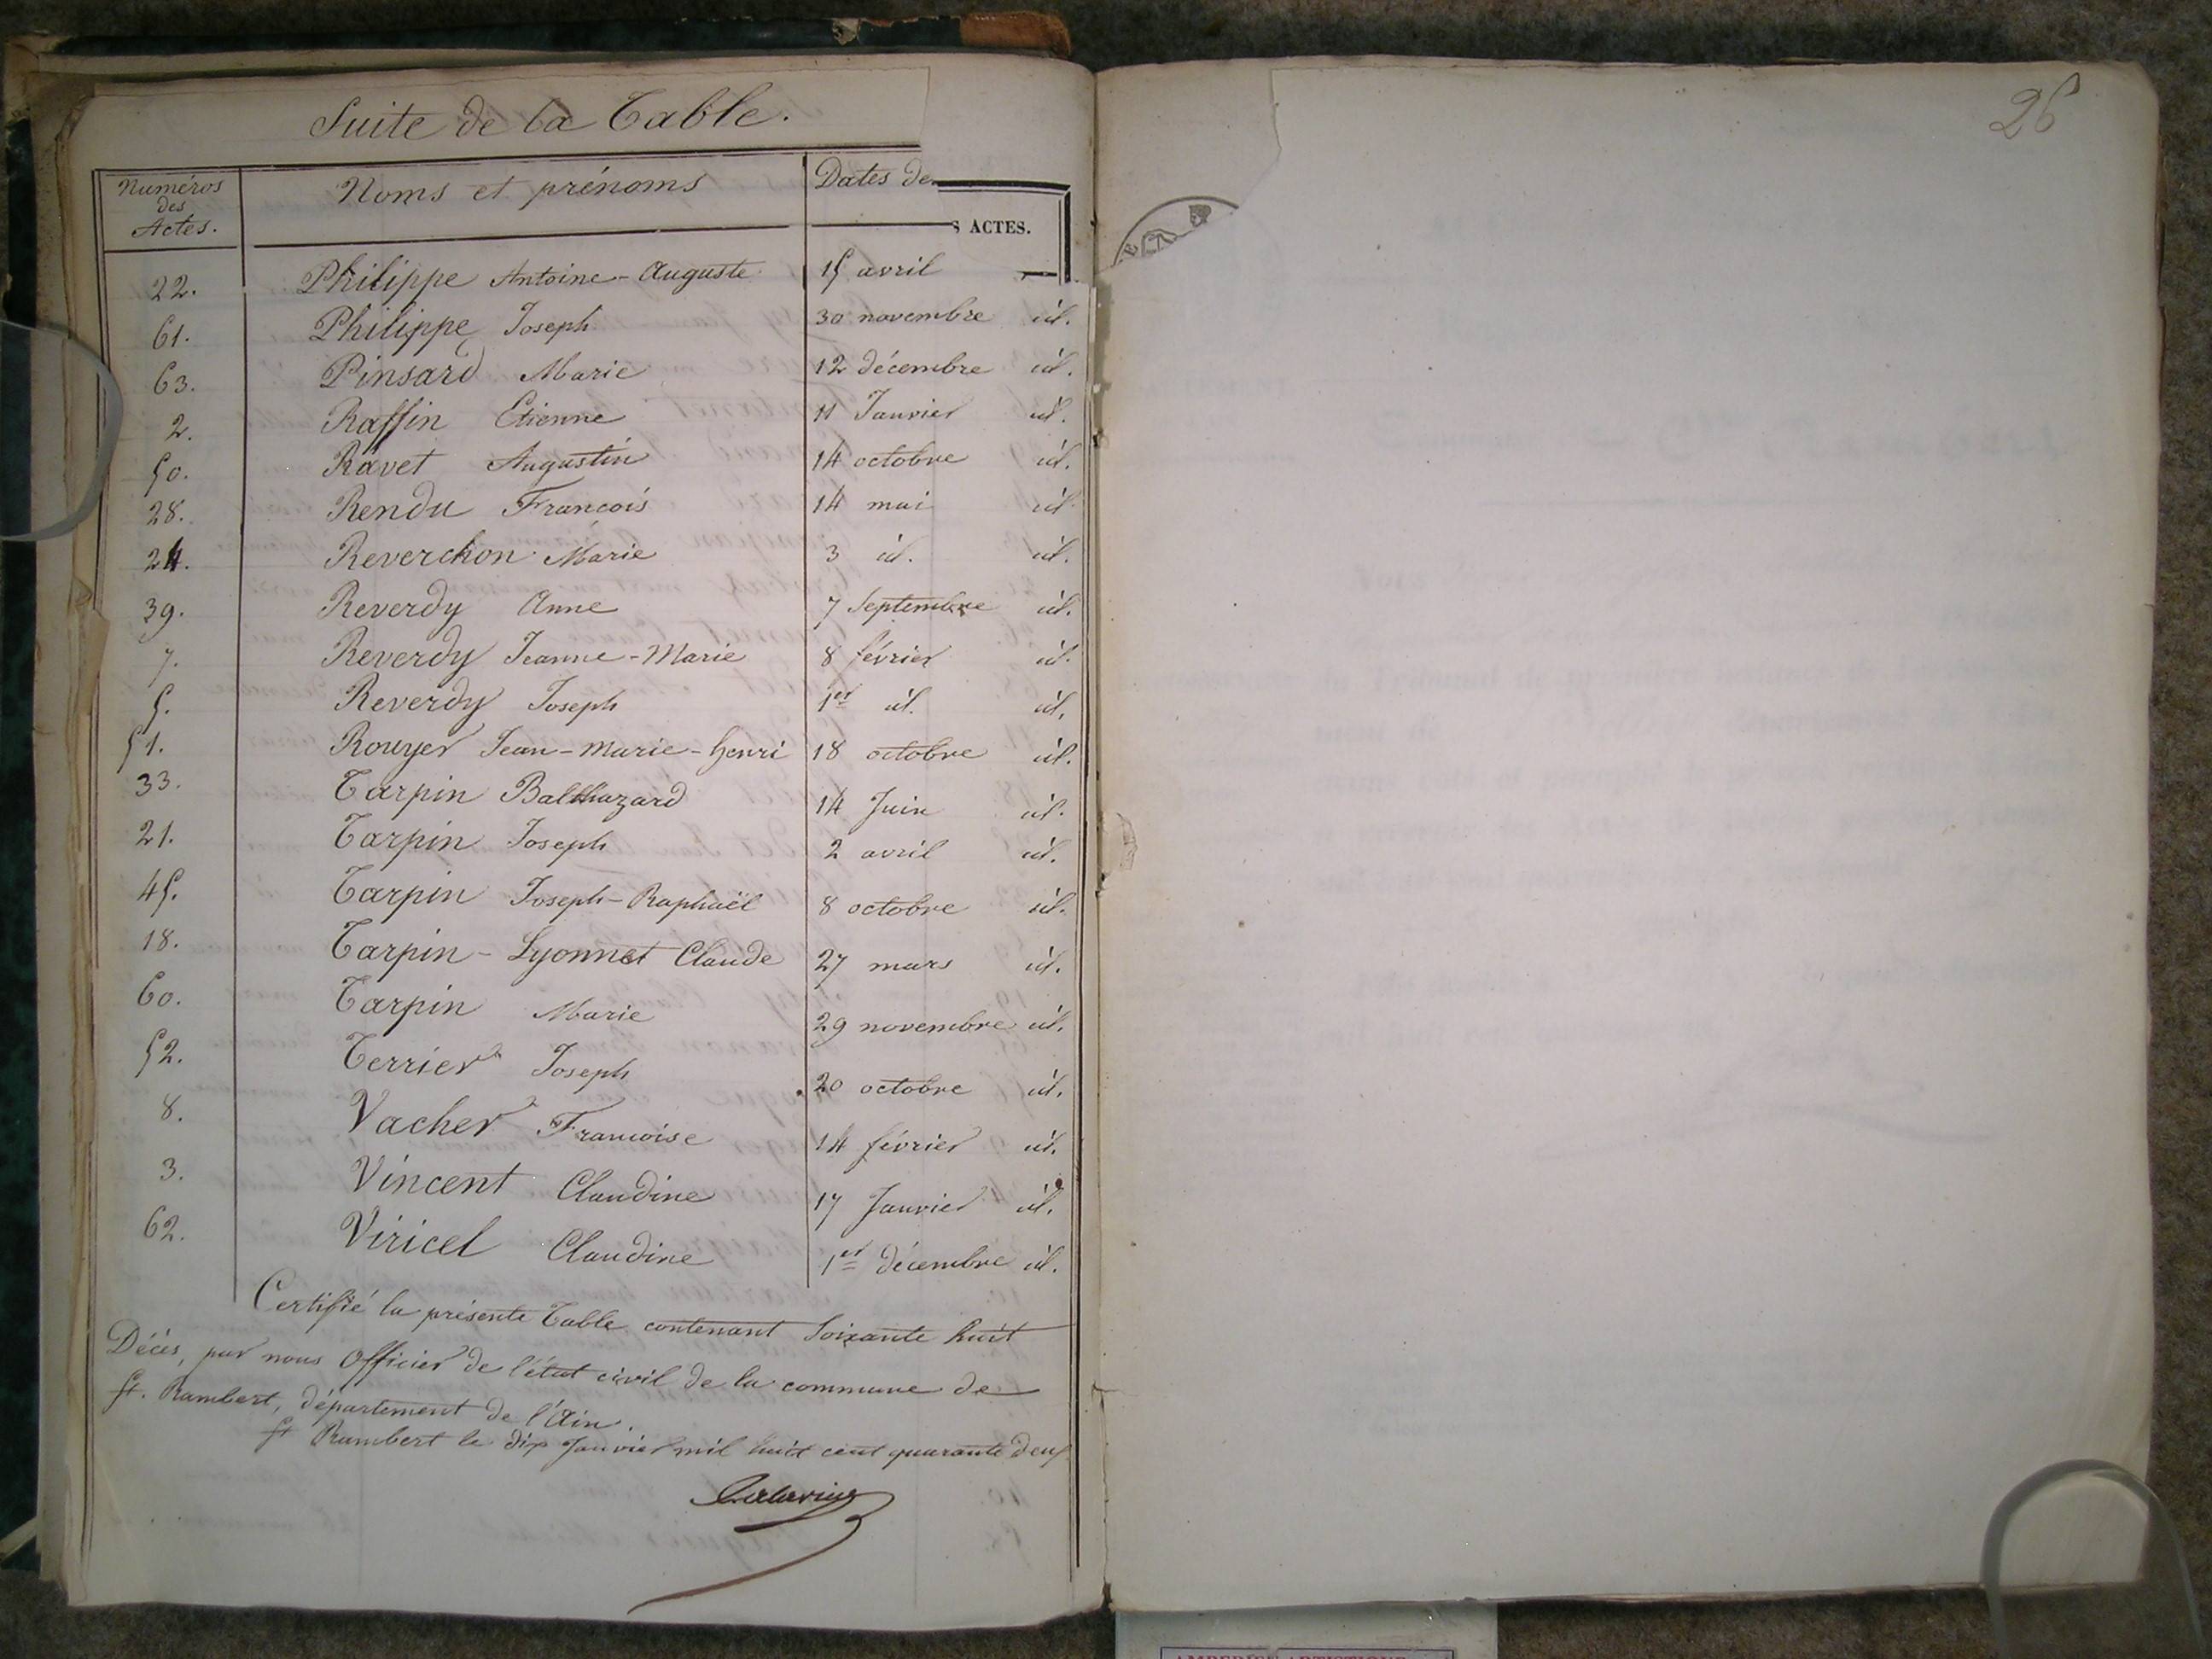 Suite de la Table.
Numéros des Actes. Noms et prénoms Dates de
S ACTES.
22. Philippe Antoine-Auguste 15 avril
61. Philippe Joseph 30 novembre id.
63. Pinsard Marie 12 décembre id.
2. Raffin Etienne 11 Janvier id.
50. Ravet Augustin 14 octobre id.
28. Rendu François 14 mai id.
24. Reverchon Marie 3 id. id.
39. Reverdy Anne 7 Septembre id.
7. Reverdy Jeanne-Marie 8 février id.
5. Reverdy Joseph 1er id. id.
51. Rouyer Jean-Marie-henri 18 octobre id.
33. Tarpin Balthazard 14 Juin id.
21. Tarpin Joseph 2 avril id.
45. Tarpin Joseph-Raphaël 8 octobre id.
18. Tarpin-Lyonnet Claude 27 mars id.
60. Tarpin Marie 29 novembre id.
52. Terrier Joseph 20 octobre id.
8. Vacher Francoise 14 février id.
3. Vincent Claudine 17 Janvier id.
62. Viricel Claudine 1er décembre id.
Certifié la présente Table contenant Soixante huit
Décès, par nous Officier de l'état civil de la commune de
St. Rambert, département de l'Ain.
St Rambert le dix Janvier mil huit cent quarante deux
26